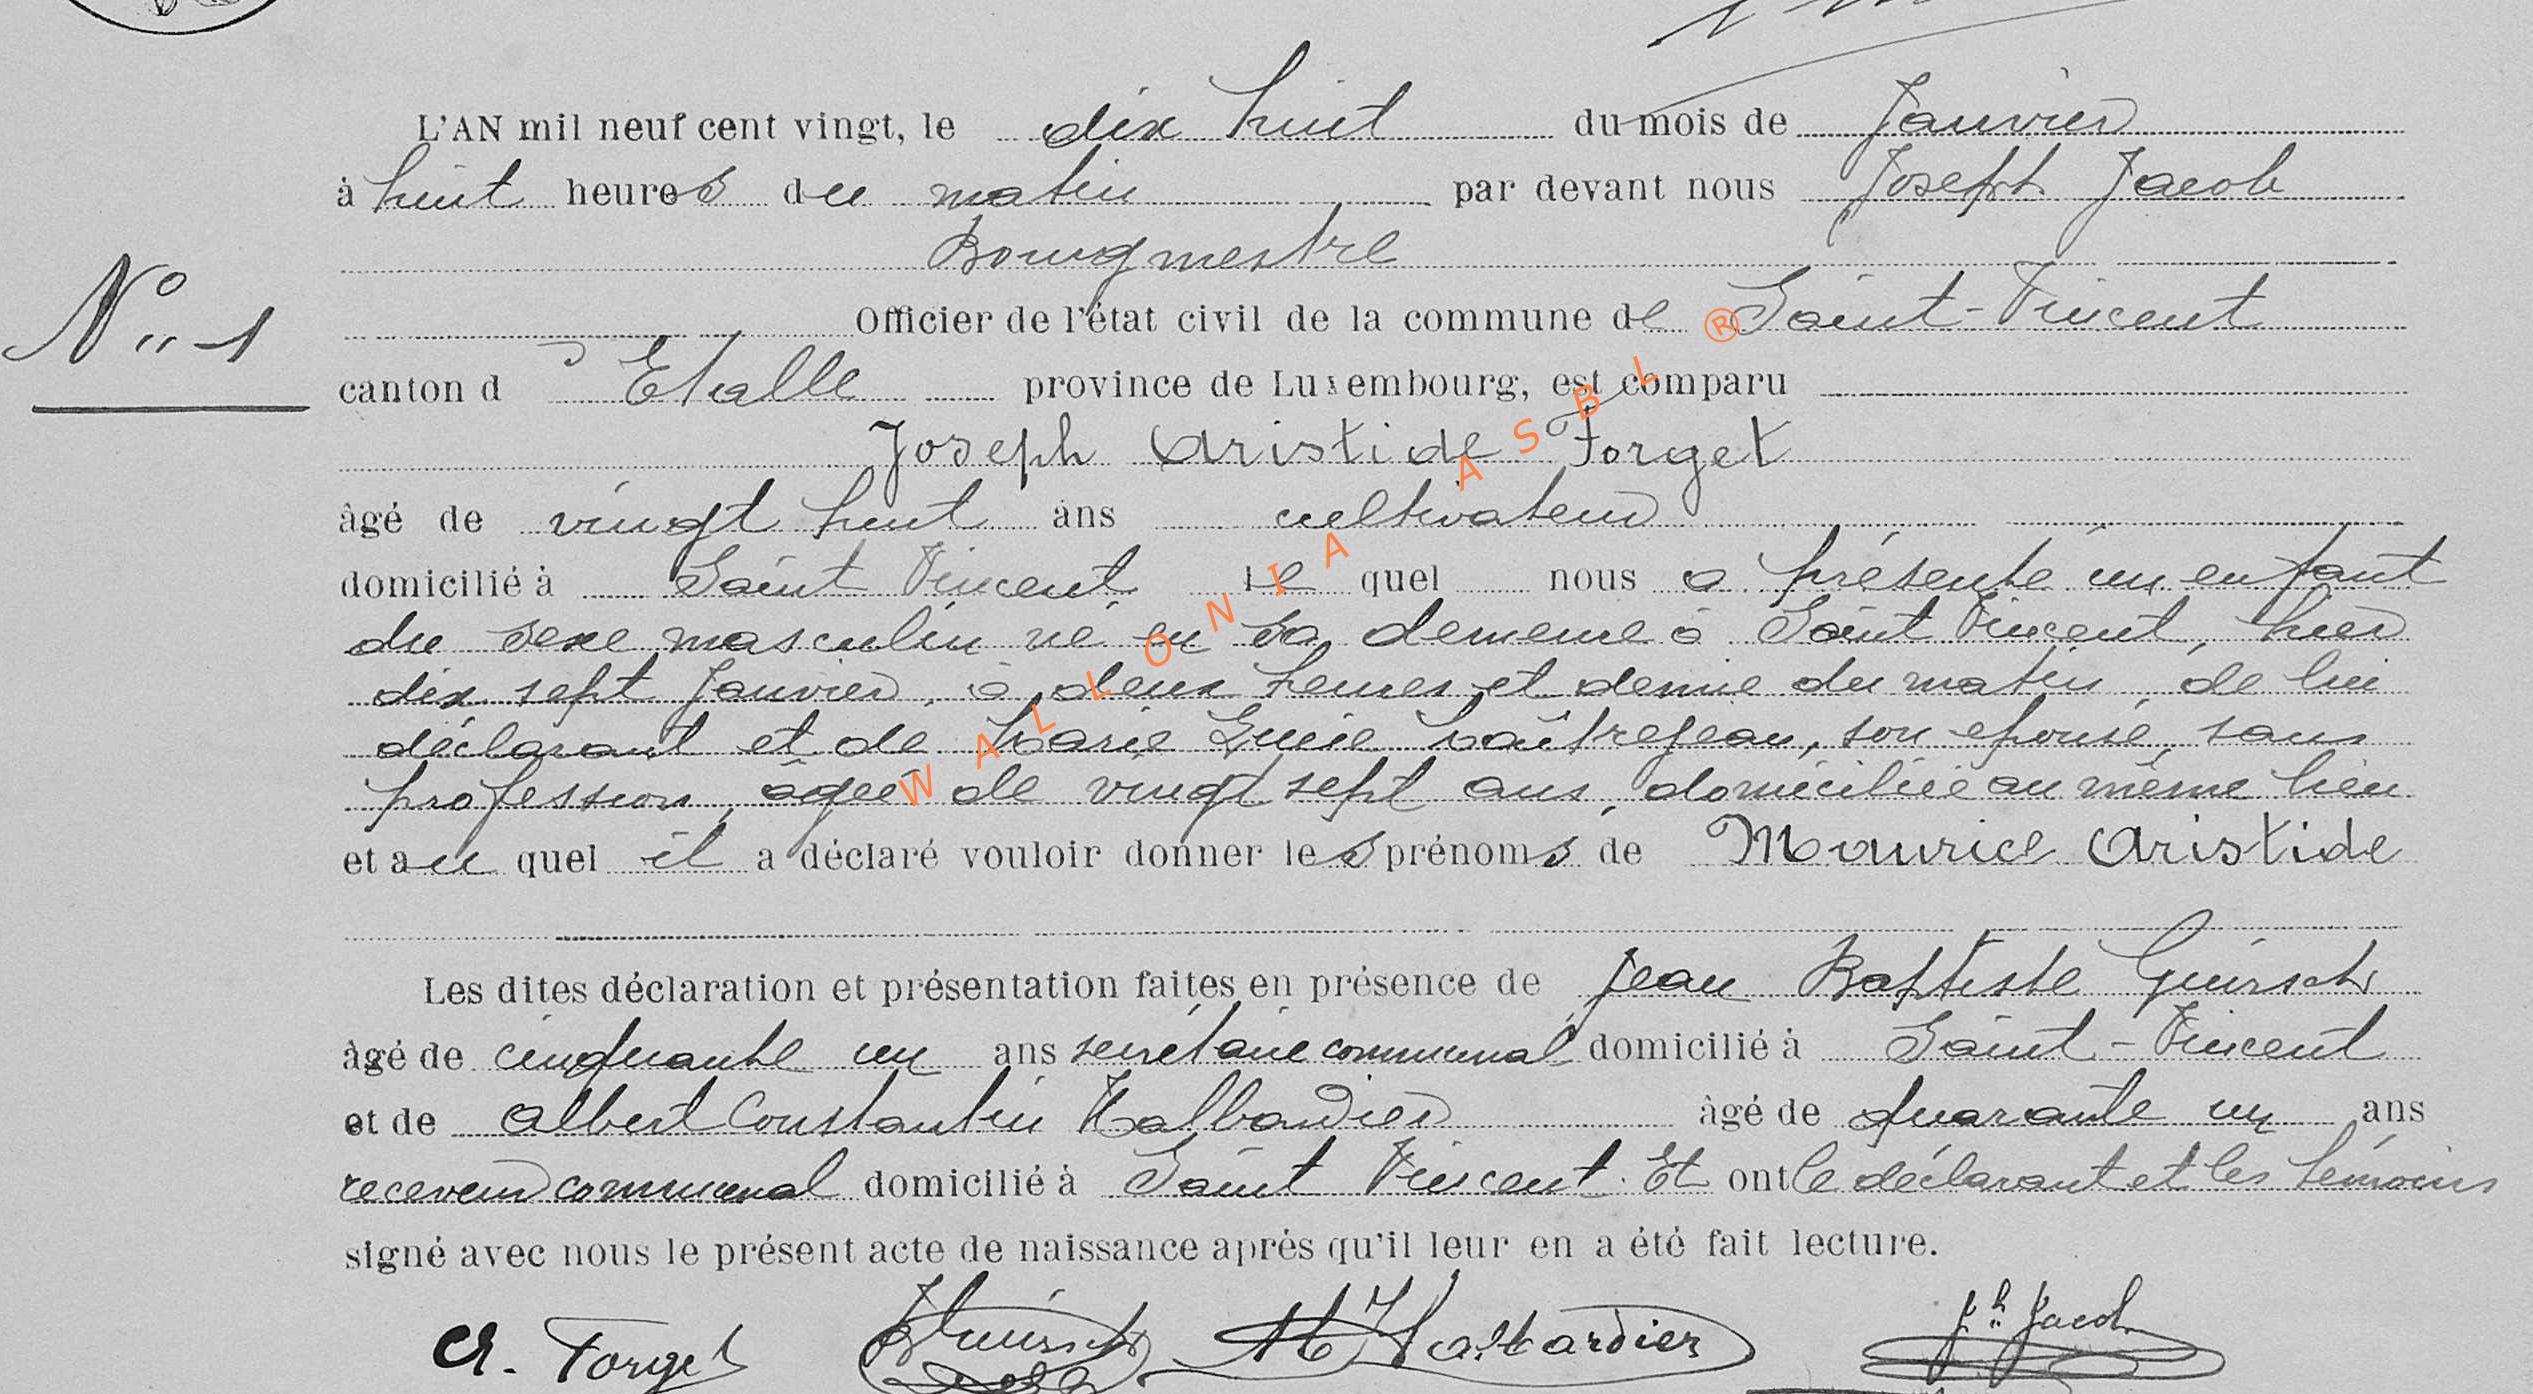 L'AN mil neuf cent vingt, le dix huit du mois de Janvier
à huit heures du matin par devant nous Joseph Jacob
Bourgmestre
N° 1
Officier de l'état civil de la commune de Saint-Vincent
canton d'Etalle province de Luxembourg, est comparu
Joseph Aristide Forget
âgé de vingt huit ans cultivateur
domicilié à Saint Vincent lequel nous a présenté un enfant
du sexe masculin né en sa demeure à Saint Vincent, hier
dix sept Janvier, à deux heures et demie du matin, de lui
déclarant et de Marie Lucie Maîtrejean, son épouse, sans
profession, âgée de vingt sept ans, domiciliée au même lieu
et auquel il a déclaré vouloir donner les prénoms de Maurice Aristide
Les dites déclaration et présentation faites en présence de Jean Baptiste Guirsch
âgé de cinquante un ans secrétaire communal domicilié à Saint-Vincent
et de Albert Constantin Halbardier âgé de quarante un ans
receveur communal domicilié à Saint Vincent. Et ont le déclarant et les témoins
signé avec nous le présent acte de naissance après qu'il leur en a été fait lecture.
A. Forget JBGuirsch Halbardier Jh Jacob
WALLONIA ASBL ®